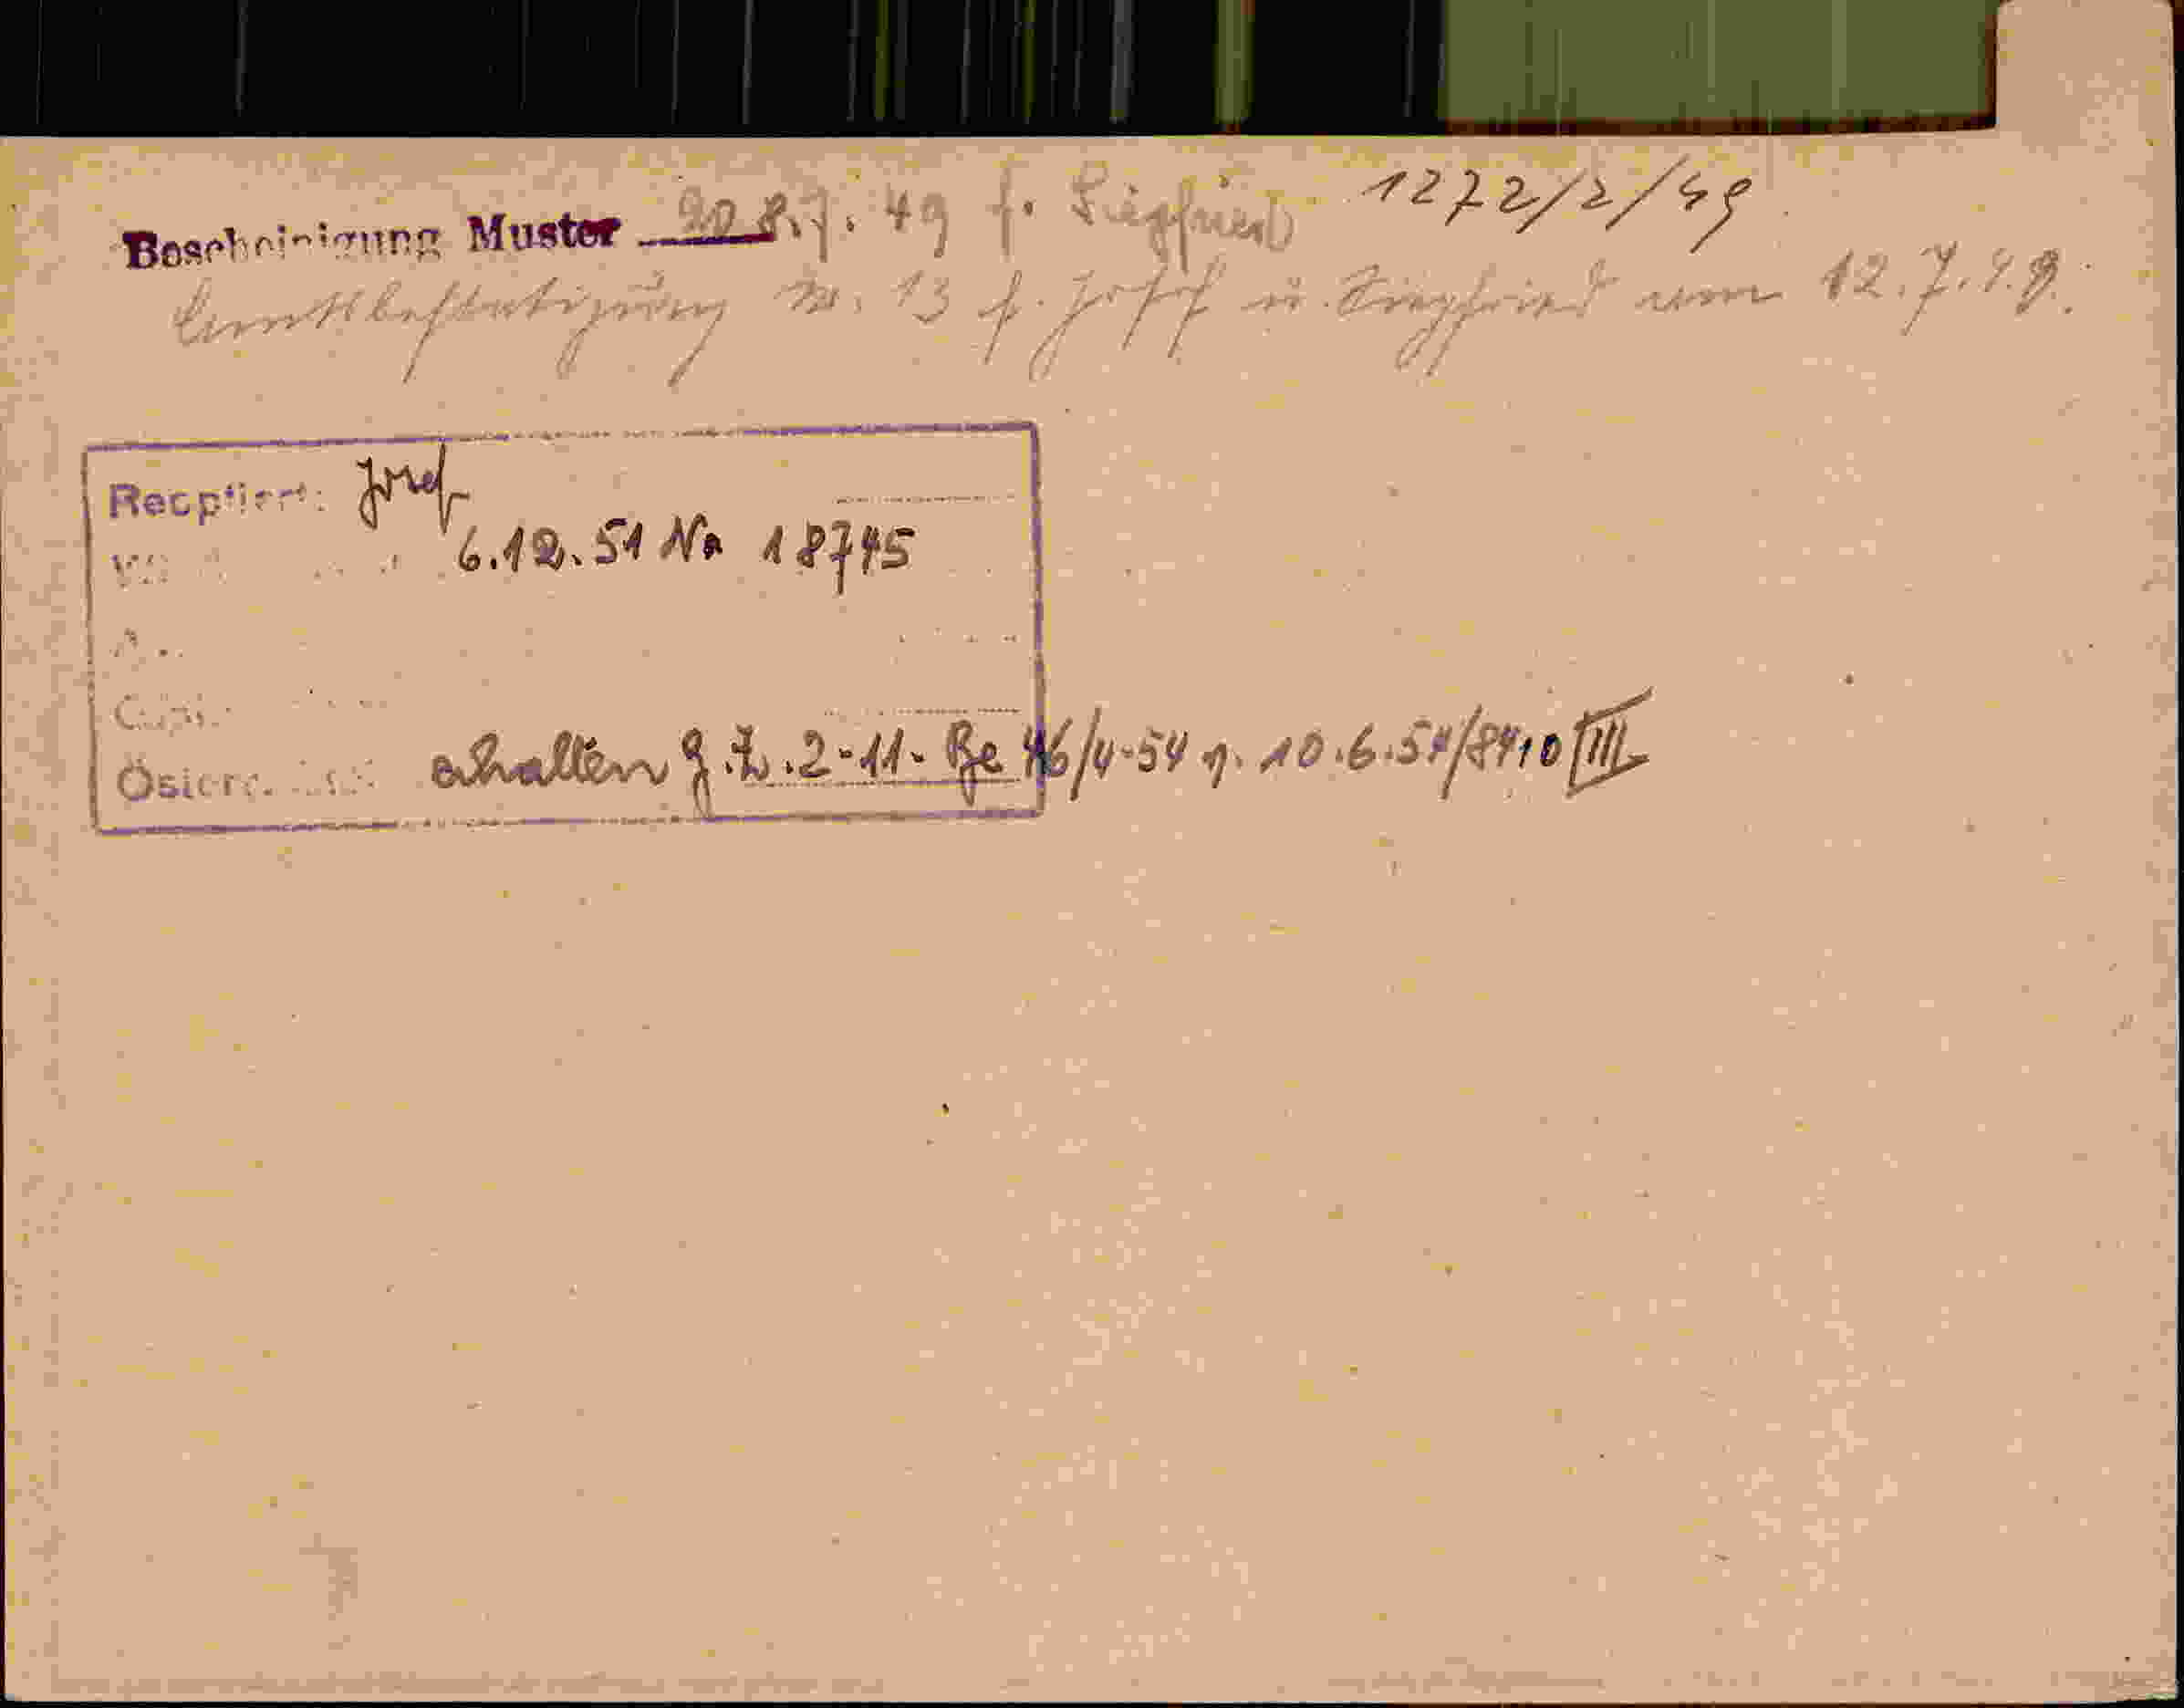 Bescheinigung Muster 20 8.7.49 f. Siegfried 1272/2/49
Amtsbestätigung Nr. 13 f. Josef u. Siegfried vom 12.7.49.
Reoptiert: Josef
6.12.51 No 18745
erhalten g.Z. 2-11-Be 46/4-54 v. 10.6.54/8410 III